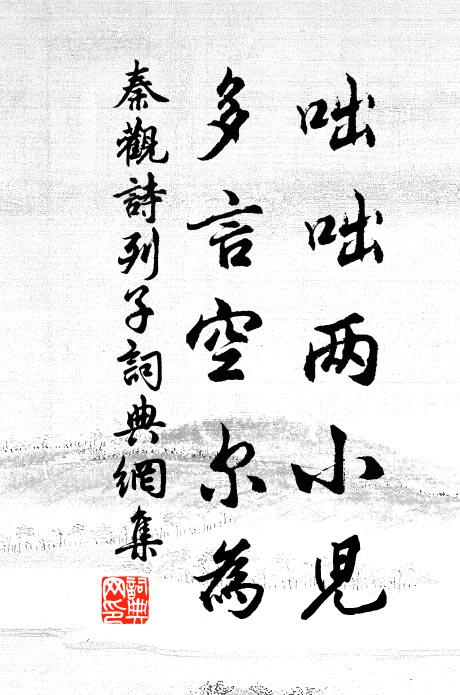 咄咄两小児
多言空尔為
秦觀詩列子詞典網集
詞典网印